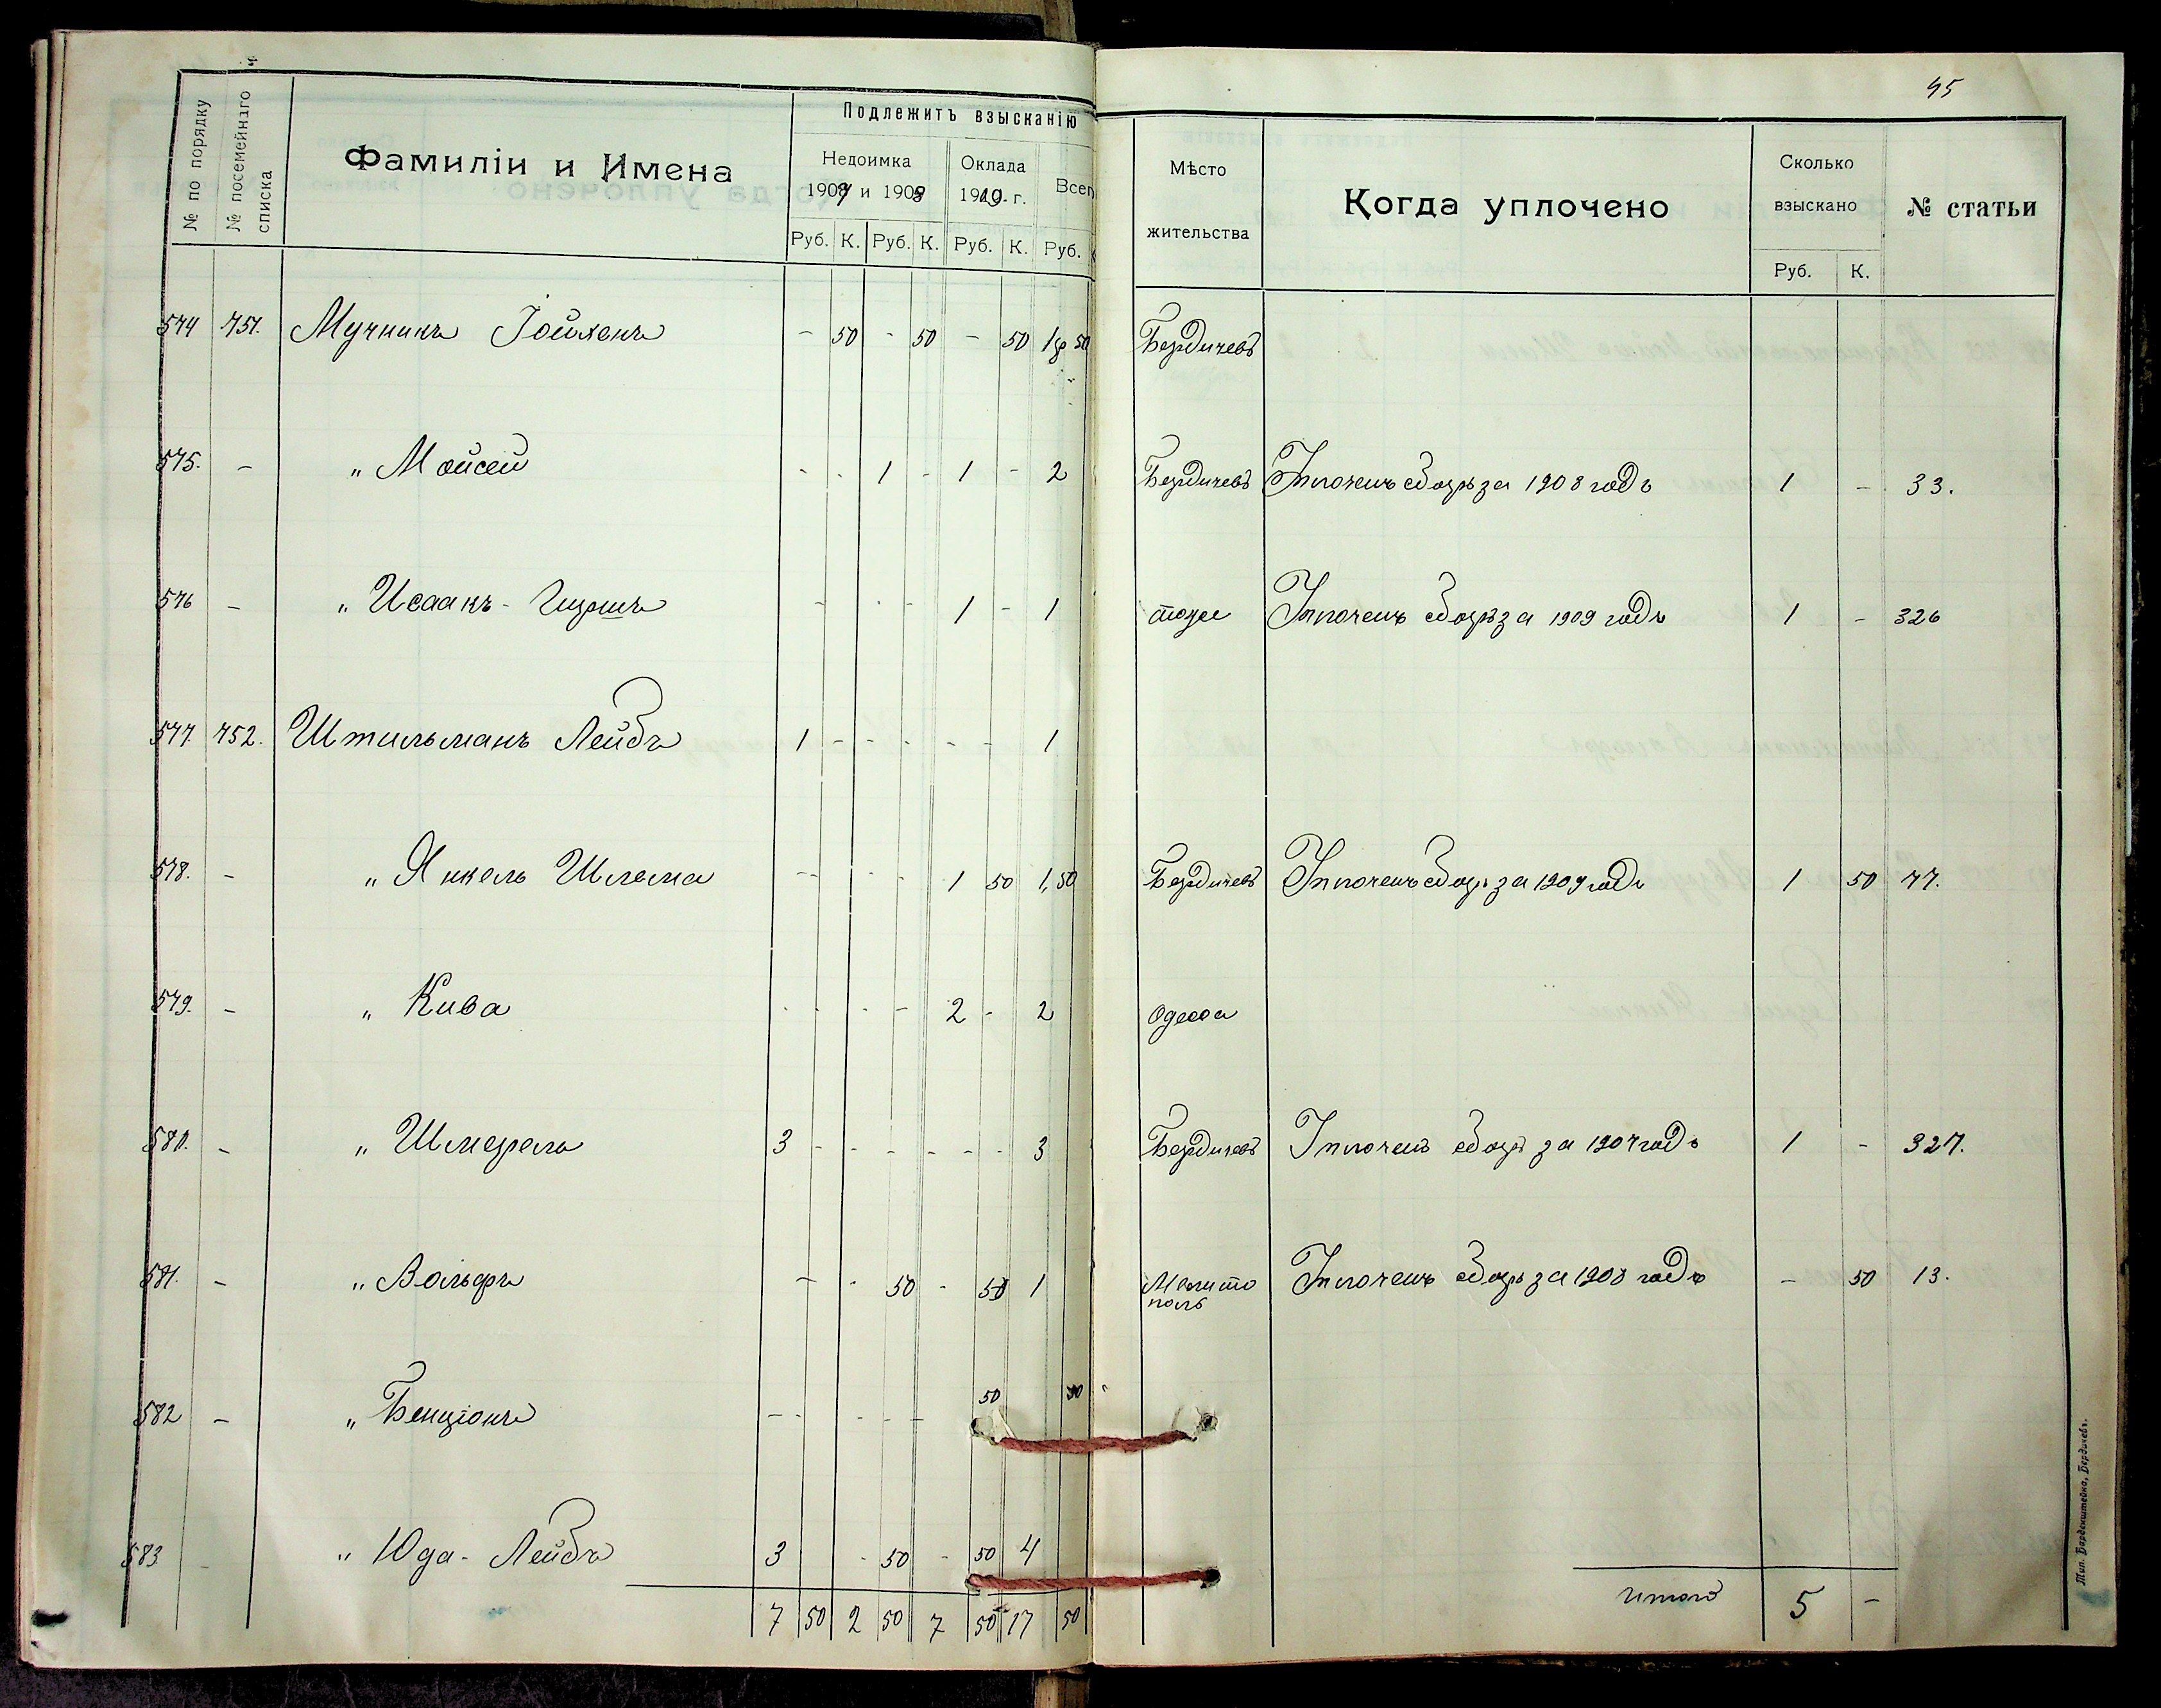 45
№ по порядку
№ посемейнаго списка
Фамиліи и Имена
Подлежитъ взысканію
Недоимка
1907 и 1908
Оклада
1909 г.
Всего
Руб. К. Руб. К. Руб. К. Руб.
Мѣсто жительства
Когда уплочено
Сколько взыскано
Руб. К.
№ статьи
574 751. Мучникъ Іойхенъ - 50 - 50 - 50 1 р 50 Бердичевъ
575. - " Мойсей - - 1 - 1 - 2 Бердичевъ Уплоченъ сборъ за 1908 годъ 1 - 33.
576 - " Исаакъ-Гершъ - - - 1 - 1 тоже Уплоченъ сборъ за 1909 годъ 1 - 326
577. 752. Штильманъ Лейбъ 1 - - - - - 1
578. - " Янкель Шлема - - - - 1 50 1,50 Бердичевъ Уплоченъ сборъ за 1909 годъ 1 50 77.
579. - " Кива - - - - 2 - 2 Одесса
580. - " Шмерель 3 - - - - - 3 Бердичевъ Уплоченъ сборъ за 1907 годъ 1 - 327.
581. - " Вольфъ - - 50 - 50 1 Мелитополь Уплоченъ сборъ за 1908 годъ - 50 13.
582 - " Бенціонъ - - - - - 50 50
583 - " Юда-Лейбъ 3 - 50 - 50 4
7 50 2 50 7 50 17 50
итого 5 -
Тип. Барденштейна, Бердичевъ.